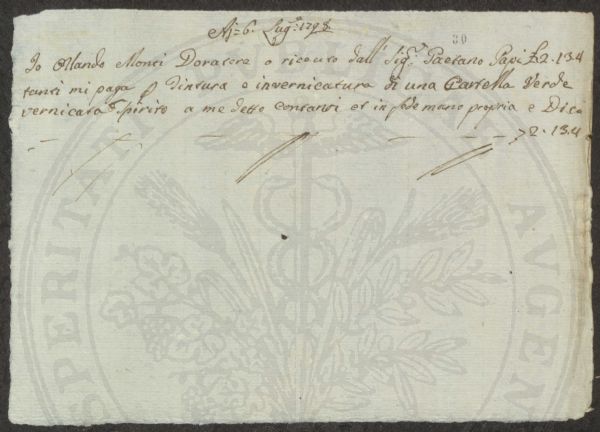 Aj = 6. Lug.º 1798
30
Io Orlando Monci Doratore o riceuto dall' Sig.r Gaetano Papi £2.13.4
tanti mi paga p tintura e invernicatura di una Cartella Verde
vernicata spirito a me detto contanti et in fede mano propria e Dico
2.13.4
SPERITA
PUBLIC
AVGEN